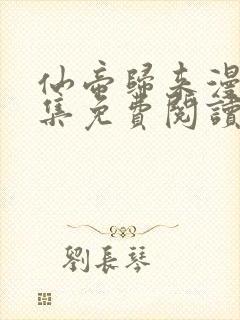 仙帝歸來漫
集免費閱讀
劉長琴